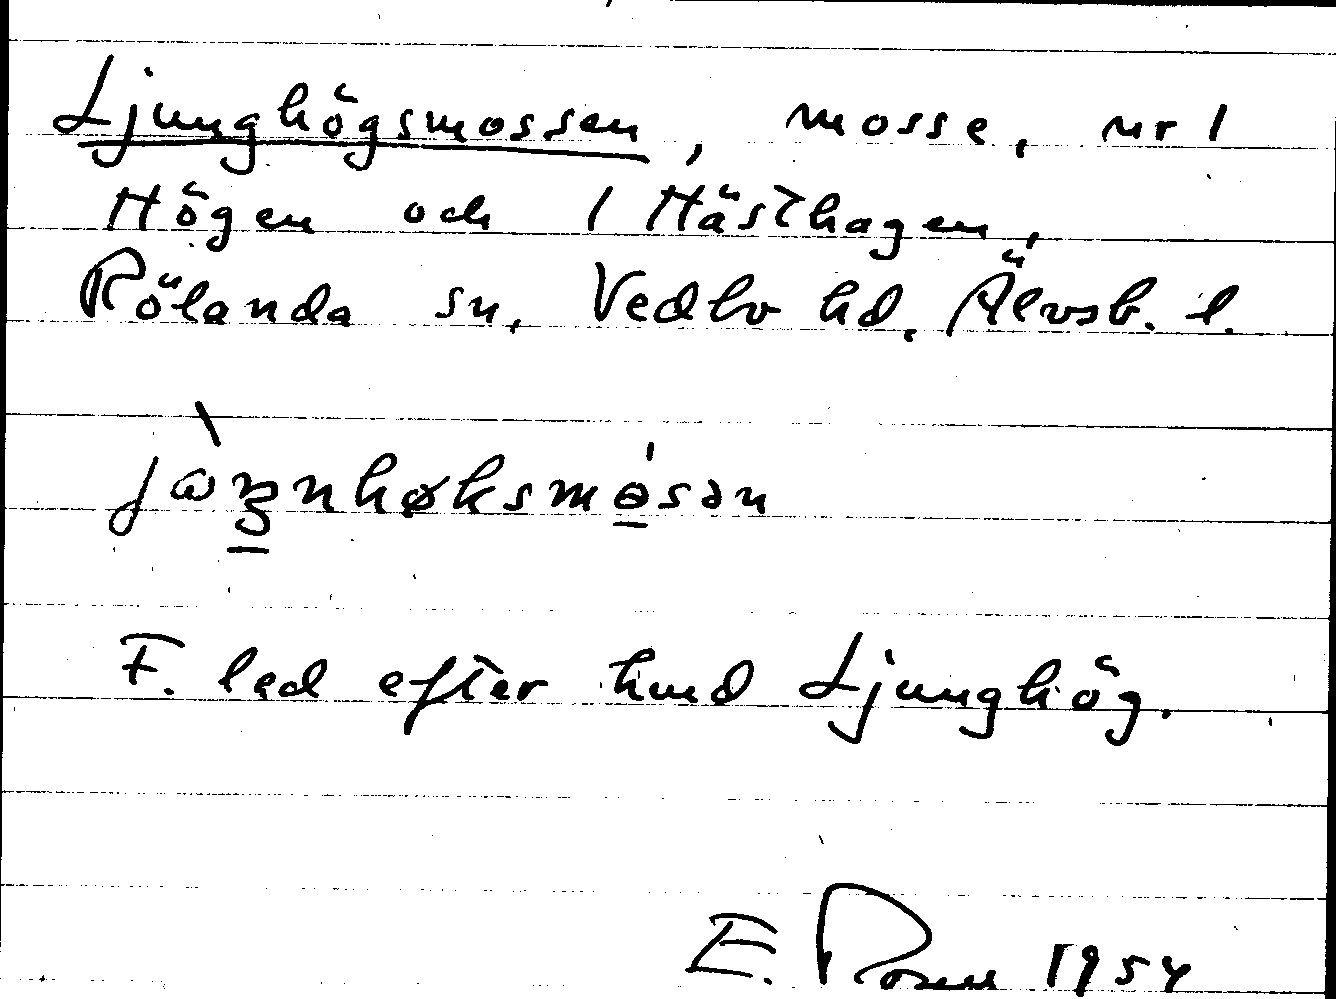 Ljunghögsmossen, mosse, nr 1
Högen och 1 Hästhagen,
Rölanda sn, Vedbo hd. Älvsb. l.
F. led efter hmd Ljunghög.
E. 1954